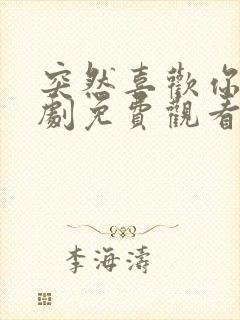 突然喜歡你
劇免費觀看
李海濤